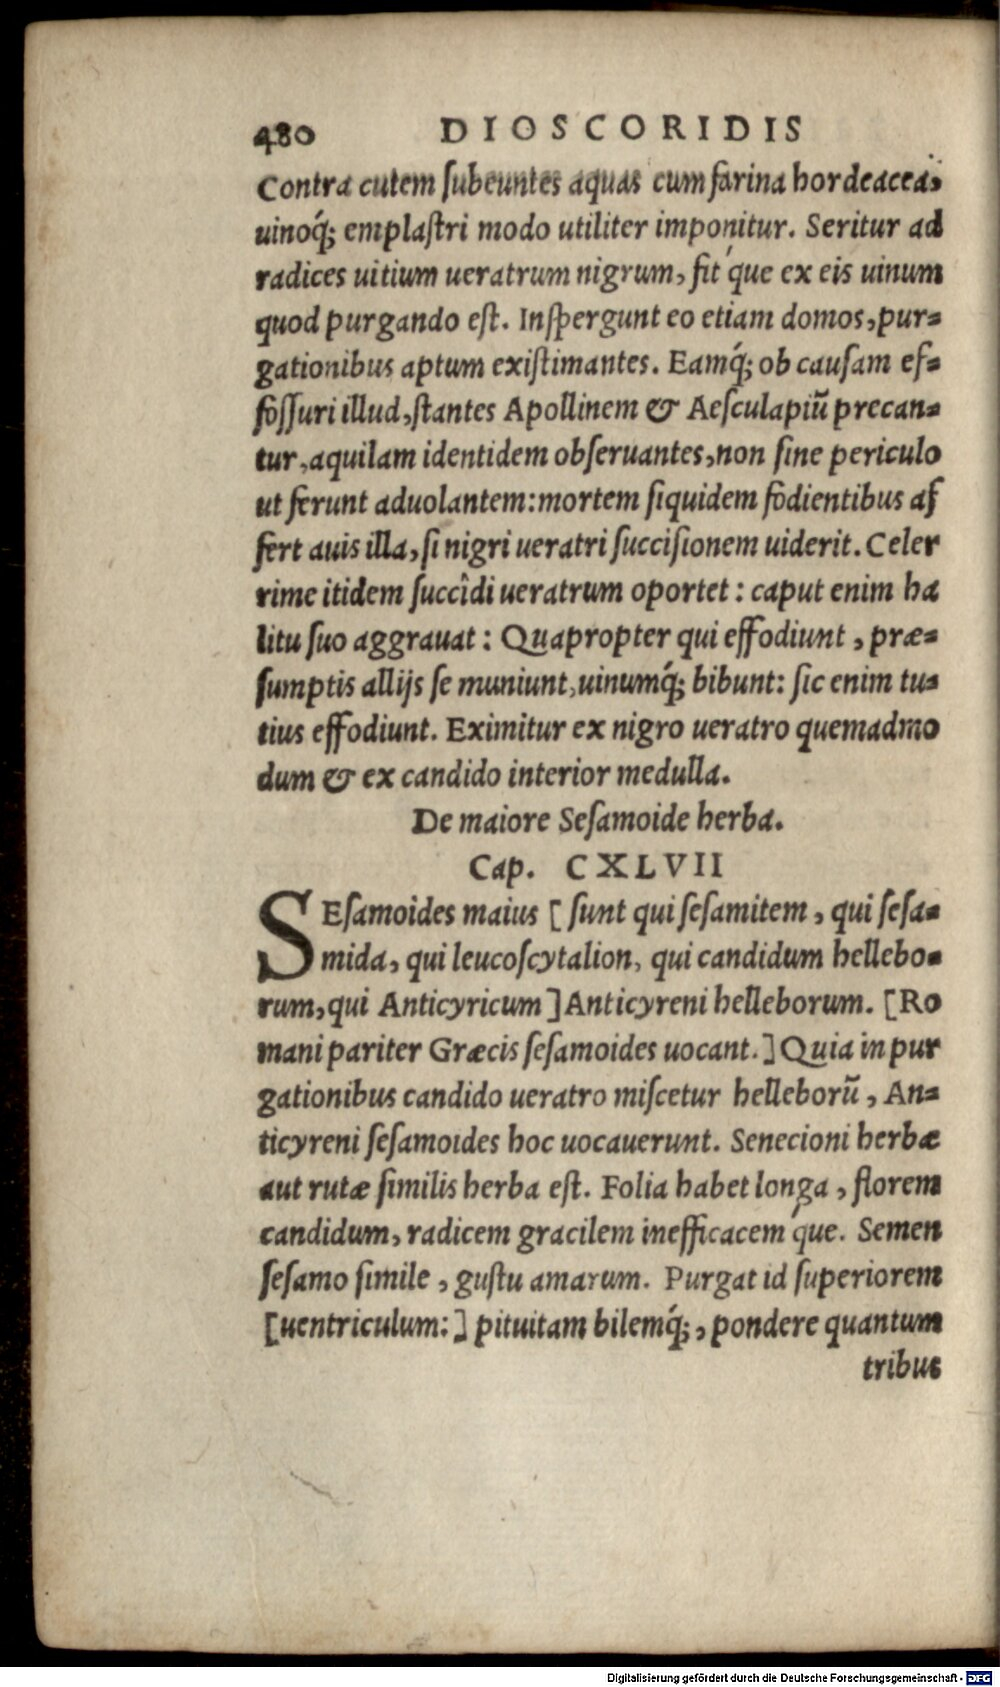 480 DIOSCORIDIS
Contra cutem ſubeuntes aquas cum farina hordeacea,
uinoq́; emplaſtri modo utiliter imponitur. Seritur ad
radices uitium ueratrum nigrum, fit́que ex eis uinum
quod purgando eſt. Inſpergunt eo etiam domos, pur-
gationibus aptum exiſtimantes. Eamq́; ob cauſam ef-
foſſuri illud, ſtantes Apollinem & Aeſculapiũ precan-
tur, aquilam identidem obſeruantes, non ſine periculo
ut ferunt aduolantem: mortem ſiquidem fodientibus af
fert auis illa, ſi nigri ueratri ſucciſionem uiderit. Celer
rime itidem ſuccîdi ueratrum oportet: caput enim ha
litu ſuo aggrauat: Quapropter qui effodiunt, præ-
ſumptis allijs ſe muniunt, uinumq́; bibunt: ſic enim tu-
tius effodiunt. Eximitur ex nigro ueratro quemadmo
dum & ex candido interior medulla.
De maiore Seſamoide herba.
Cap. CXLVII
SEſamoides maius [ ſunt qui ſeſamitem, qui ſeſa-
mida, qui leucoſcytalion, qui candidum hellebo-
rum, qui Anticyricum ] Anticyreni helleborum. [Ro
mani pariter Græcis ſeſamoides uocant.] Quia in pur
gationibus candido ueratro miſcetur helleborũ, An-
ticyreni ſeſamoides hoc uocauerunt. Senecioni herbæ
aut rutæ ſimilis herba eſt. Folia habet longa, florem
candidum, radicem gracilem inefficacem q́ue. Semen
ſeſamo ſimile, guſtu amarum. Purgat id ſuperiorem
[uentriculum:] pituitam bilemq́;, pondere quantum
tribus
Digitalisierung gefördert durch die Deutsche Forschungsgemeinschaft - DFG